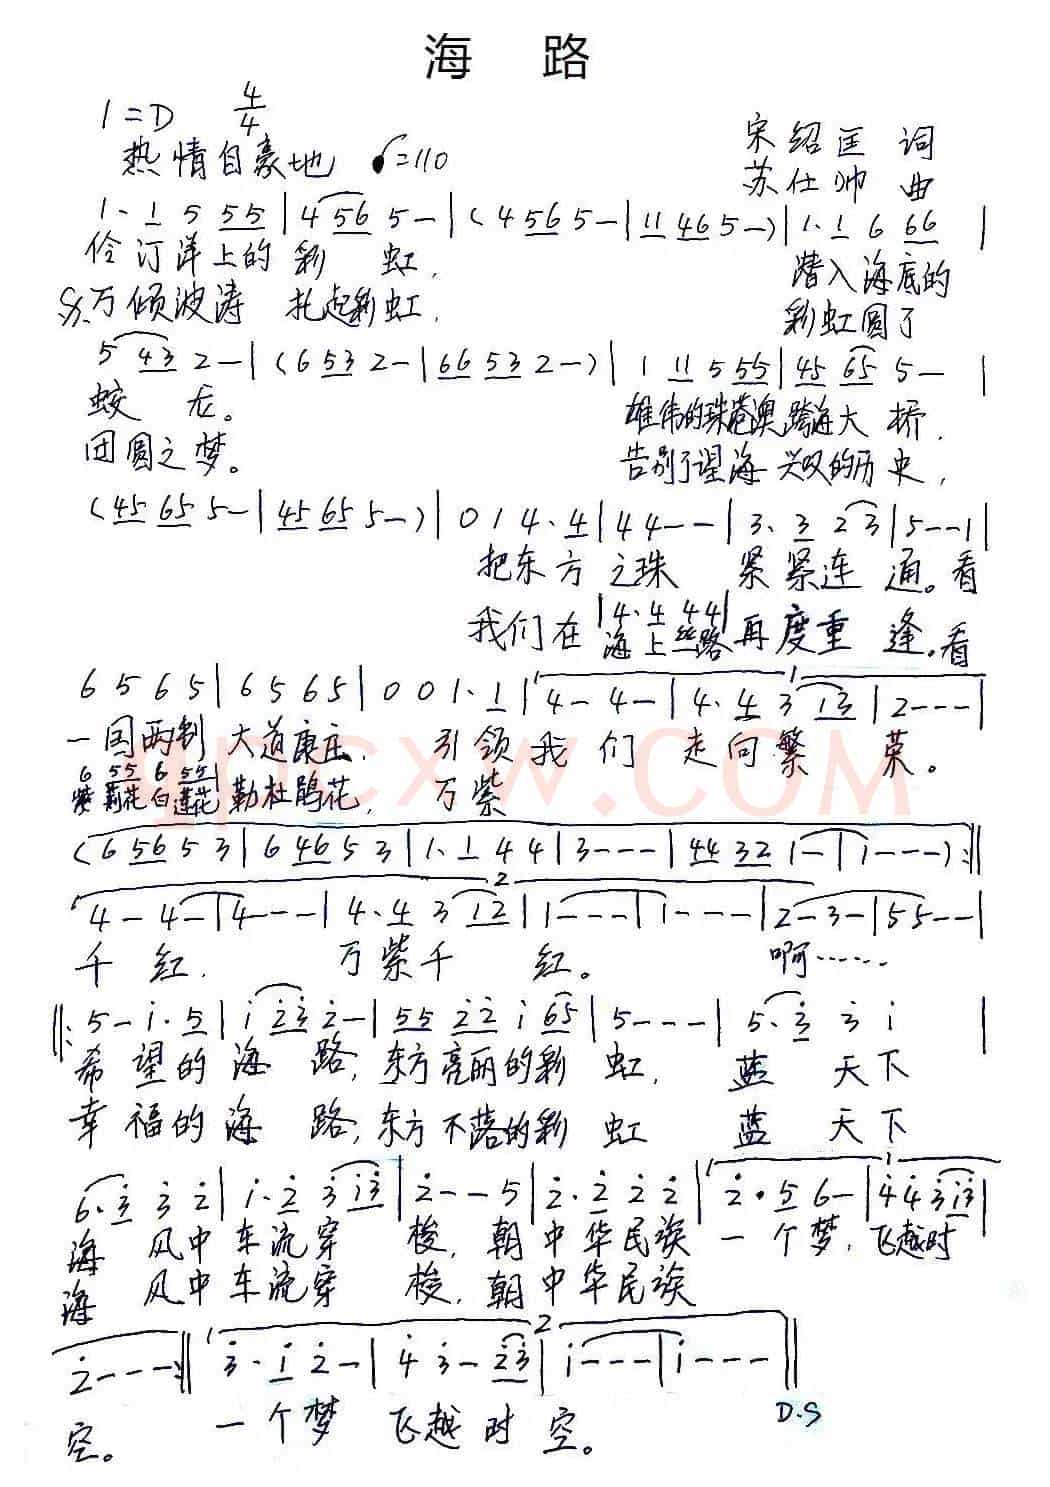 海 路
1=D 4/4
宋绍匡 词
热情自豪地 ♩=110
苏仕帅 曲
1· 1 5 55 | 4 56 5 — | (4 56 5 — | 11 46 5 —) | 1· 1 6 66 |
伶汀洋上的 彩 虹, 潜入海底的
𝄋万倾波涛 托起彩虹, 彩虹圆了
5 43 2 — | (6 53 2 — | 66 53 2 —) | 1 11 5 55 | 45 65 5 — |
蛟 龙。 雄伟的珠港澳跨海大 桥,
团圆之梦。 告别了望海兴叹的历 史,
(45 65 5 — | 45 65 5 —) | 0 1 4· 4 | 4 4 — — | 3· 3 2 3 | 5 — — 1 |
把东方 之珠 紧紧连 通。看
|4· 4 44|
我们在 海上丝路 再度重 逢。看
6 5 6 5 | 6 5 6 5 | 0 0 1· 1 | 4 — 4 — | 4· 4 3 13 | 2 — — — |
一国两制 大道康庄, 引领我们 走向繁 荣。
6 55 6 55
紫荆花白莲花勒杜鹃花, 万紫
(6 56 5 3 | 6 46 5 3 | 1· 1 4 4 | 3 — — — | 44 32 1 — | 1 — — —) :||
2
4 — 4 — | 4 — — — | 4· 4 3 12 | 1 — — — | 1 — — — | 2 — 3 — | 5 5 — — |
千 红, 万紫千 红。 啊……
||: 5 — i· 5 | i 2̇3̇ 2̇ — | 55 2̇2̇ i 65 | 5 — — — | 5· 3̇ 3̇ i |
希望的海 路,东方亮丽的彩 虹, 蓝 天下
幸福的海 路,东方不落的彩 虹 蓝 天下
6· 3̇ 3̇ 2̇ | i· 2̇ 3̇ i3̇ | 2̇ — — 5 | 2̇· 2̇ 2̇ 2̇ | 2̇· 5 6 — | 4̇ 4̇ 3̇ i3̇ |
海 风中车流穿 梭,朝中华民族 一个梦,飞越时
海 风中车流穿 梭,朝中华民族
2̇ — — — :|| 3̇· i 2̇ — | 4̇ 3̇ — 2̇3̇ | i — — — | i — — — ||
D.S
空。 一个梦 飞越时 空。
qpcxw.COM